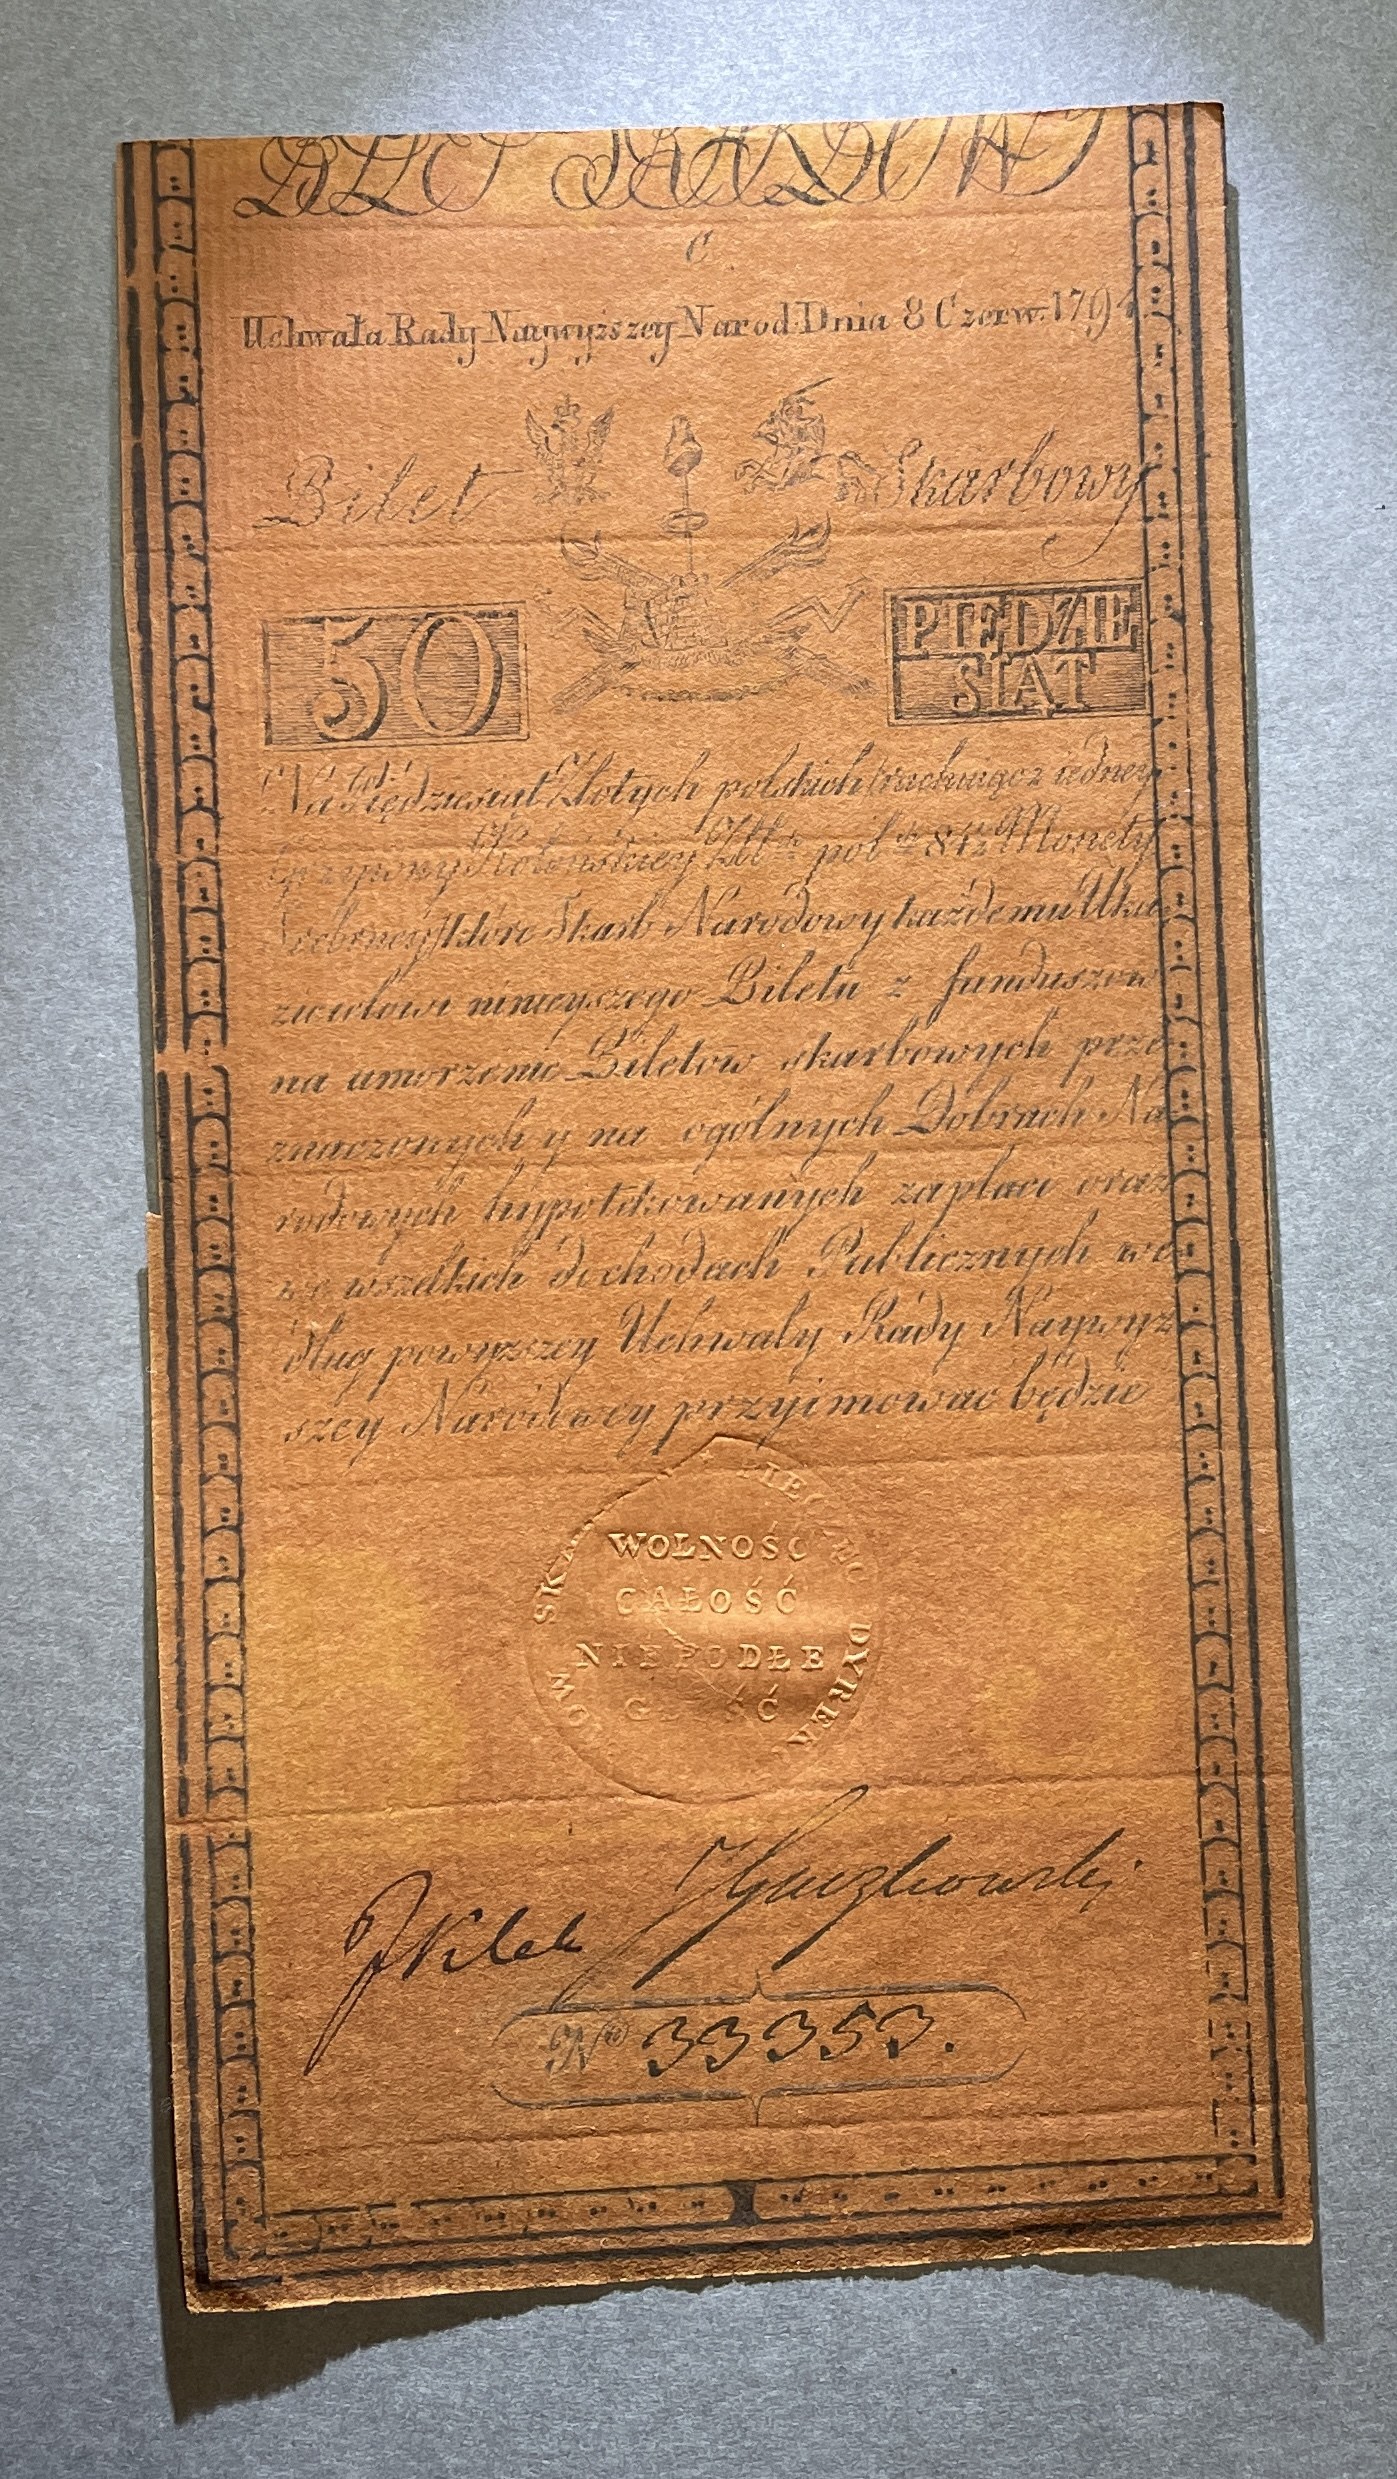 BILET SKARBOWY
C
Uchwała Rady Naywyższey Narod: Dnia 8 Czerw. 1794
Bilet Skarbowy
50
PIĘDZIE
SIĄT
Na Piędziesiąt Złotych polskich (rachuiąc z iedney
Grzywny Kolonskiey Złł:ch pol:ch 84½ Monety
Srebrney) które Skarb Narodowy każdemu Uka
zicielowi ninieyszego Biletu z funduszow
na umorzenie Biletow skarbowych prze
znaczonych y na ogólnych Dobrach Na
rodowych hypotekowanych zapłaci oraz
we wszelkich dochodach Publicznych we
dług powyższey Uchwały Rady Naywyż
szey Narodowey przyimować będzie
WOLNOŚĆ
CAŁOŚĆ
NIEPODŁE
GŁOŚĆ
DYREK
JKlek
No 33353.